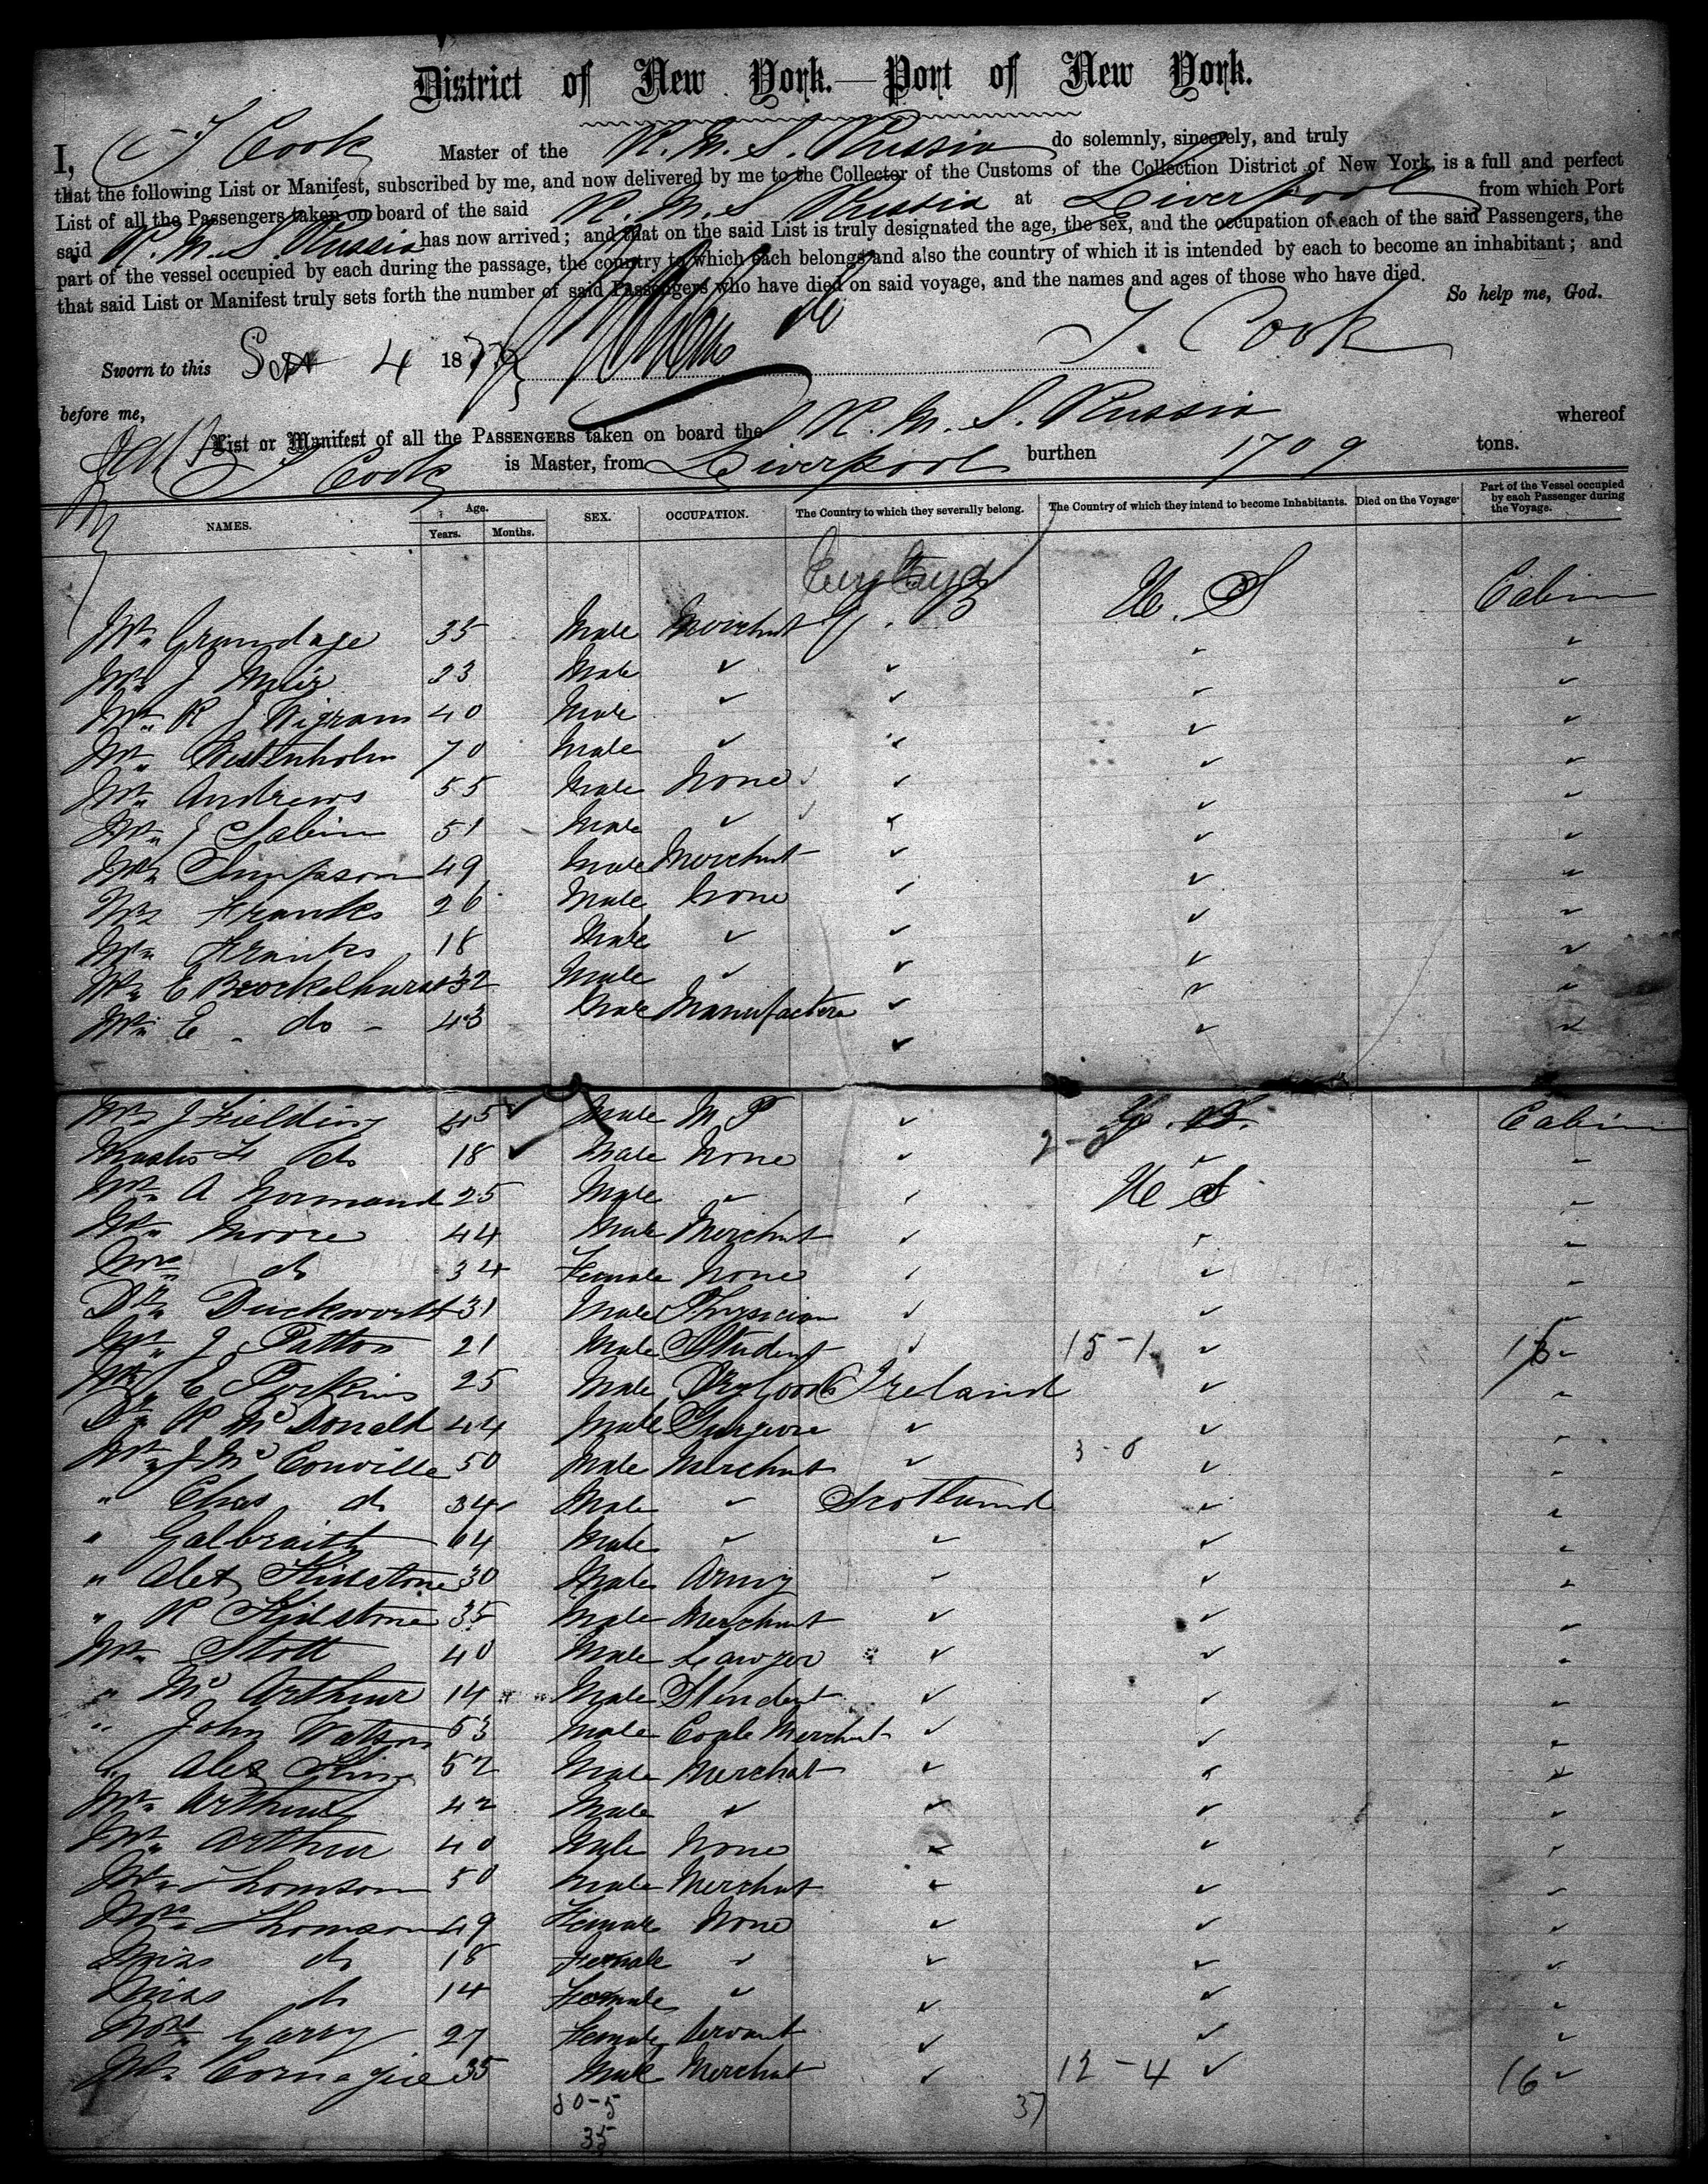 District of New York.—Port of New York.
I, T Cook Master of the R. M. S. Russia do solemnly, sincerely, and truly
that the following List or Manifest, subscribed by me, and now delivered by me to the Collector of the Customs of the Collection District of New York, is a full and perfect
List of all the Passengers taken on board of the said R. M. S Russia at Liverpool from which Port
said R. M. S. Russia has now arrived; and that on the said List is truly designated the age, the sex, and the occupation of each of the said Passengers, the
part of the vessel occupied by each during the passage, the country to which each belongs and also the country of which it is intended by each to become an inhabitant; and
that said List or Manifest truly sets forth the number of said Passengers who have died on said voyage, and the names and ages of those who have died.
So help me, God.
Sworn to this Sept 4 18 T. Cook
before me,
List or Manifest of all the PASSENGERS taken on board the R. M. S. Russia whereof
T Cook is Master, from Liverpool burthen 1709 tons.
NAMES. Age. Years. Months. SEX. OCCUPATION. The Country to which they severally belong. The Country of which they intend to become Inhabitants. Died on the Voyage. Part of the Vessel occupied by each Passenger during the Voyage.
England U. S Cabin
Mr Grundage 35 Male Merchant
Mr J Muir 23 Male "
Mr R J Wigram 40 Male "
Mr Westenholm 70 Male "
Mr Andrews 55 Male None
Mr J Sabin 51 Male "
Mr Simpson 49 Male Merchant
Mr Franks 26 Male None
Mr Franks 18 Male "
Mr E Brockelhurst 32 Male "
Mr E do 43 Male Manufacturer
Mr J Fielding 45 Male M P " Cabin
Master do 18 Male None
Mr A Normand 25 Male " U S
Mr Moore 44 Male Merchant
Mrs do 34 Female None
Dr Duckworth 31 Male Physician
Mr J Patton 21 Male Student 15-1
Mr E Perkins 25 Male Dry Goods Ireland
Dr R McDonald 44 Male Surgeon
Mr J McConville 50 Male Merchant 3-0
" Chas do 34 Male " Scotland
" Galbraith 64 Male "
" Alex Kidstone 30 Male Army
" R Kidstone 35 Male Merchant
Mr Stott 40 Male Lawyer
" Mc Arthur 14 Male Student
" John Watson 53 Male Coale Merchant
" Alex King 52 Male Merchant
Mr Arthur 42 Male "
Mr Arthur 40 Male None
Mr Thomson 50 Male Merchant
Mrs Thomson 49 Female None
Miss do 18 Female "
Miss do 14 Female "
Mrs Garry 27 Female Servant
Mr Cornagie 35 Male Merchant 12-4 16
30-5 37
35